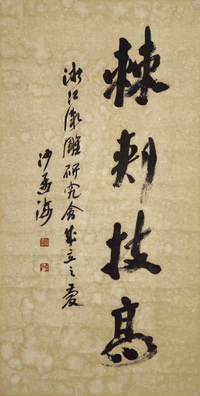 棘刺技高
浙江微雕研究会成立之庆
沙孟海